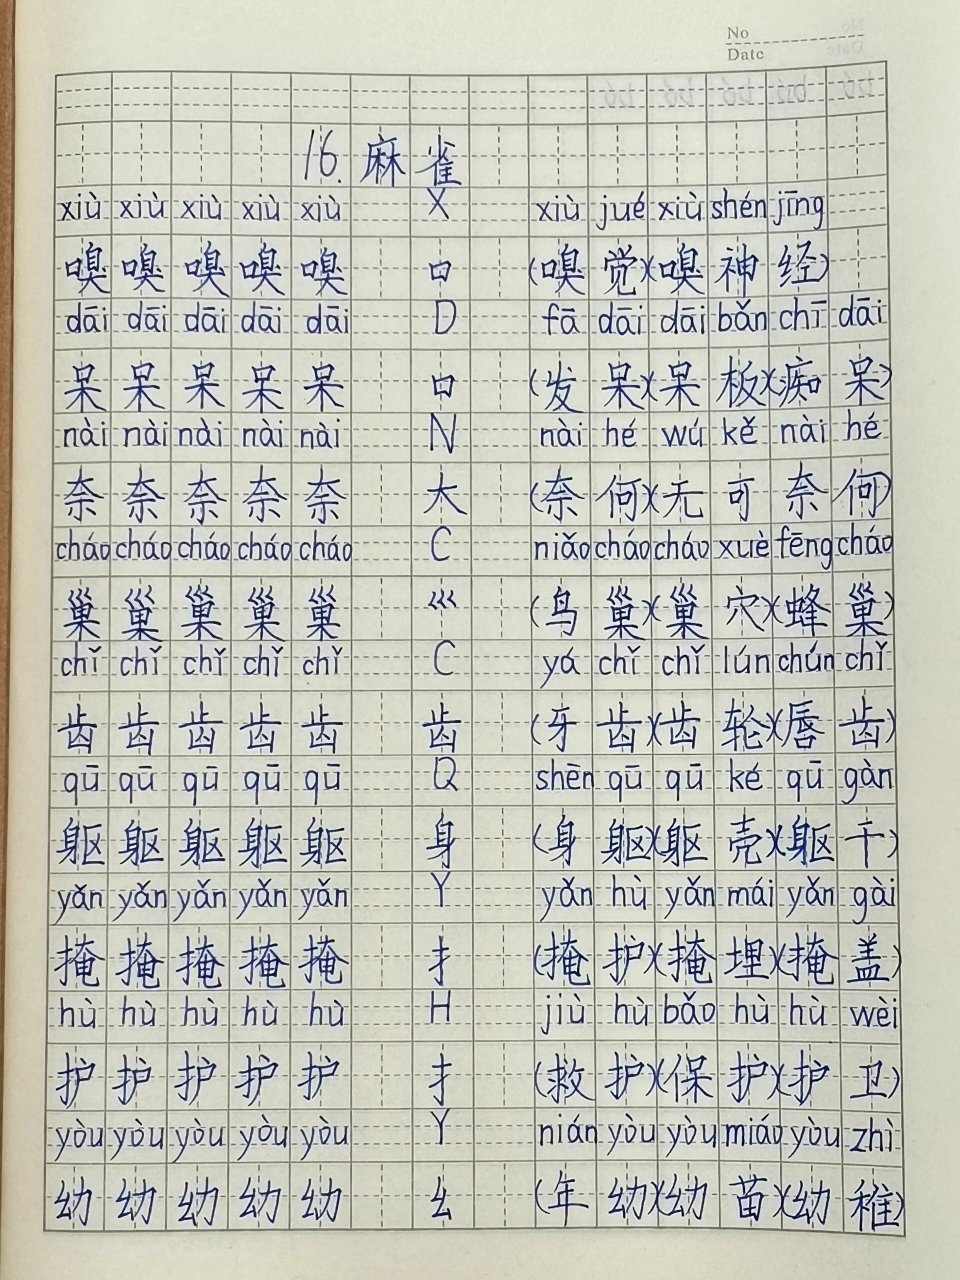 No
Date
16. 麻雀
xiù xiù xiù xiù xiù X xiù jué xiù shén jīng
嗅 嗅 嗅 嗅 嗅 口 (嗅 觉)(嗅 神 经)
dāi dāi dāi dāi dāi D fā dāi dāi bǎn chī dāi
呆 呆 呆 呆 呆 口 (发 呆)(呆 板)(痴 呆)
nài nài nài nài nài N nài hé wú kě nài hé
奈 奈 奈 奈 奈 大 (奈 何)(无 可 奈 何)
cháo cháo cháo cháo cháo C niǎo cháo cháo xuè fēng cháo
巢 巢 巢 巢 巢 巛 (鸟 巢)(巢 穴)(蜂 巢)
chǐ chǐ chǐ chǐ chǐ C yá chǐ chǐ lún chún chǐ
齿 齿 齿 齿 齿 齿 (牙 齿)(齿 轮)(唇 齿)
qū qū qū qū qū Q shēn qū qū ké qū gàn
躯 躯 躯 躯 躯 身 (身 躯)(躯 壳)(躯 干)
yǎn yǎn yǎn yǎn yǎn Y yǎn hù yǎn mái yǎn gài
掩 掩 掩 掩 掩 扌 (掩 护)(掩 埋)(掩 盖)
hù hù hù hù hù H jiù hù bǎo hù hù wèi
护 护 护 护 护 扌 (救 护)(保 护)(护 卫)
yòu yòu yòu yòu yòu Y nián yòu yòu miáo yòu zhì
幼 幼 幼 幼 幼 幺 (年 幼)(幼 苗)(幼 稚)